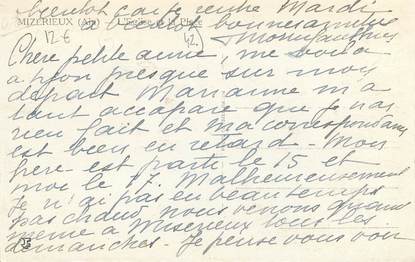 bientôt car je rentre Mardi
MIZERIEUX (Ain) - L'Eglise et la Place
à bientôt bonnes amitiés
12 € 42.
Chère petite amie, me voilà
à mon presque sur mon
départ Marianne m'a
tant accaparé que je n'ai
rien fait et ma correspondance
est bien en retard - Mon
père est parti le 15 et
moi le 17. Malheureusement
je n'ai pas eu beau temps
pas chaud, nous venons quand
même à Mizerieux tous les
dimanches - Je pense vous voir